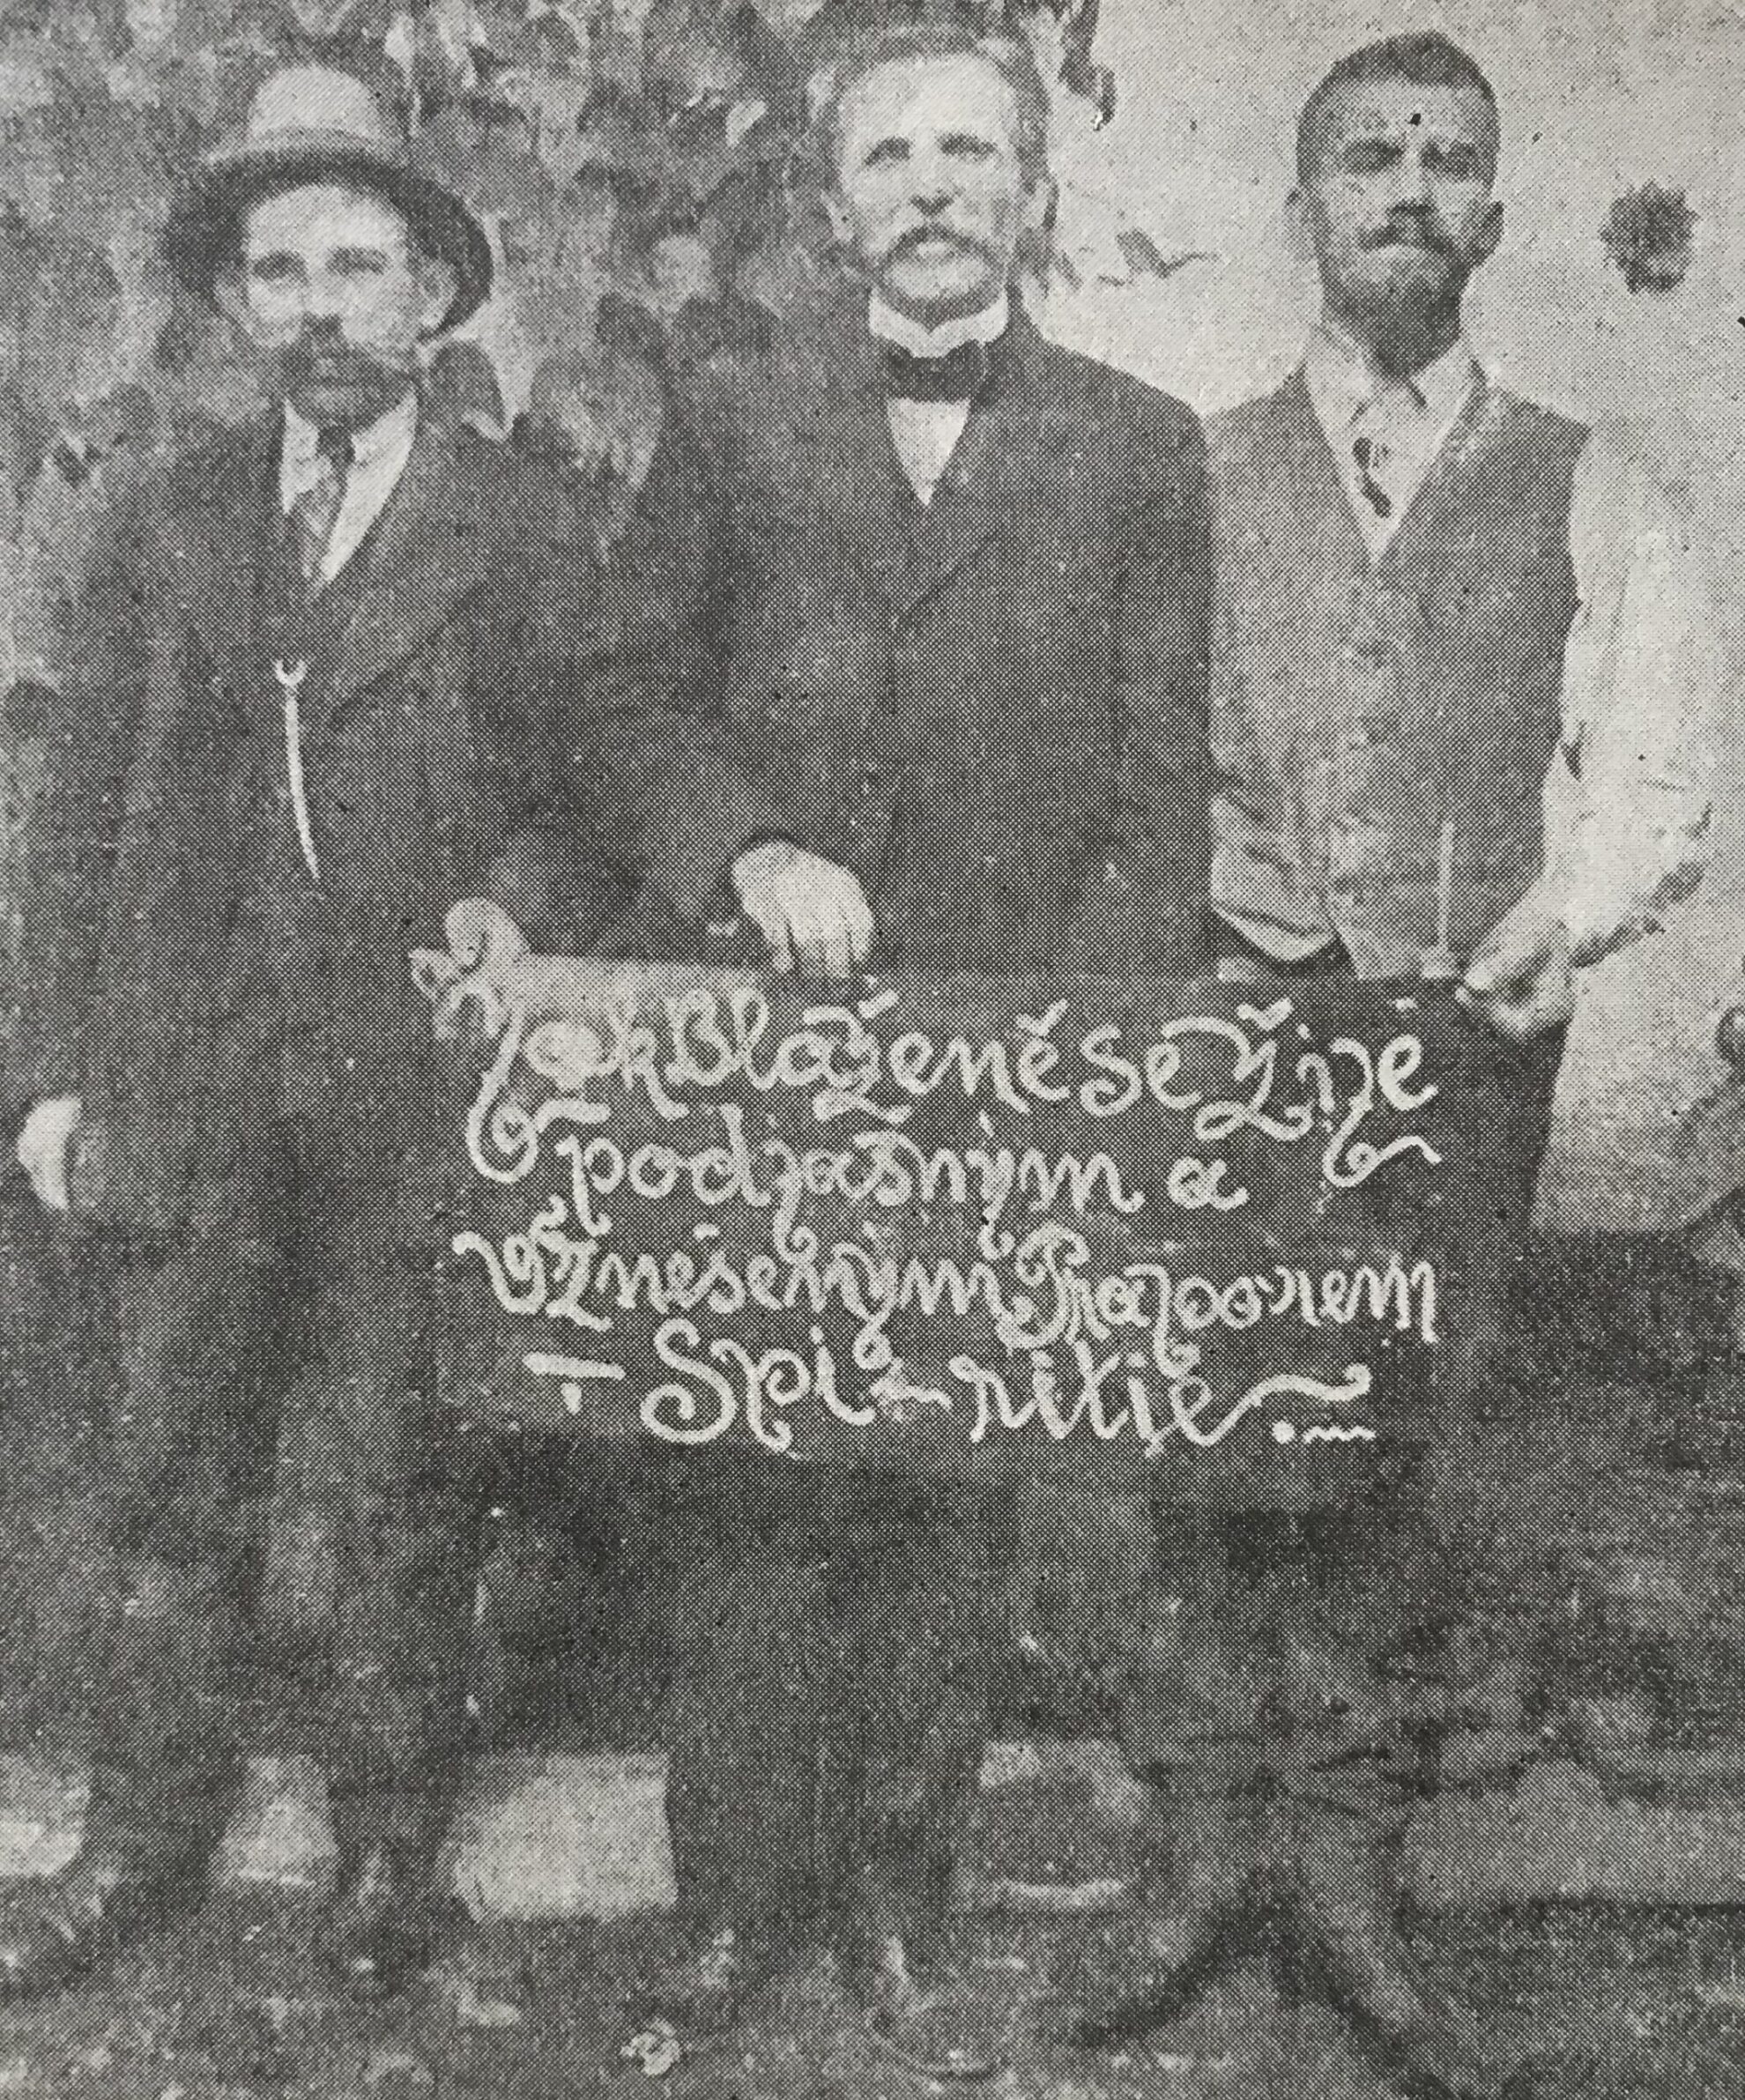 Jak Blaženě se Žije
pod jasným a
Vznešeným Praporem
- Spi-ritie